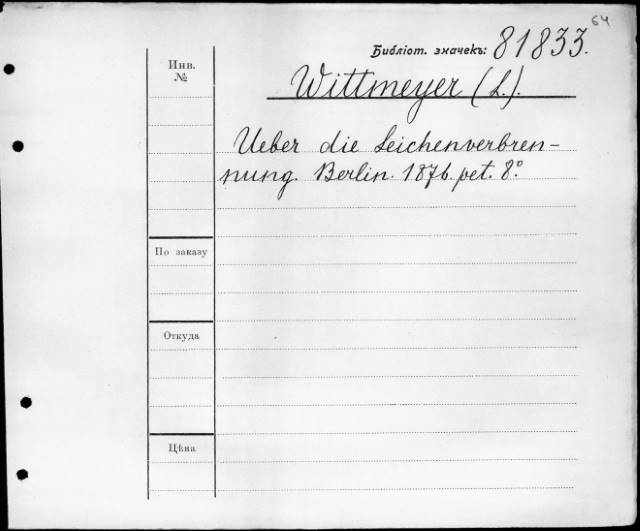 64
Библіот. значекъ: 81833.
Инв.
№
Wittmeyer (L.).
Ueber die Leichenverbren-
nung. Berlin. 1876. pet. 8°
По заказу
Откуда
Цѣна